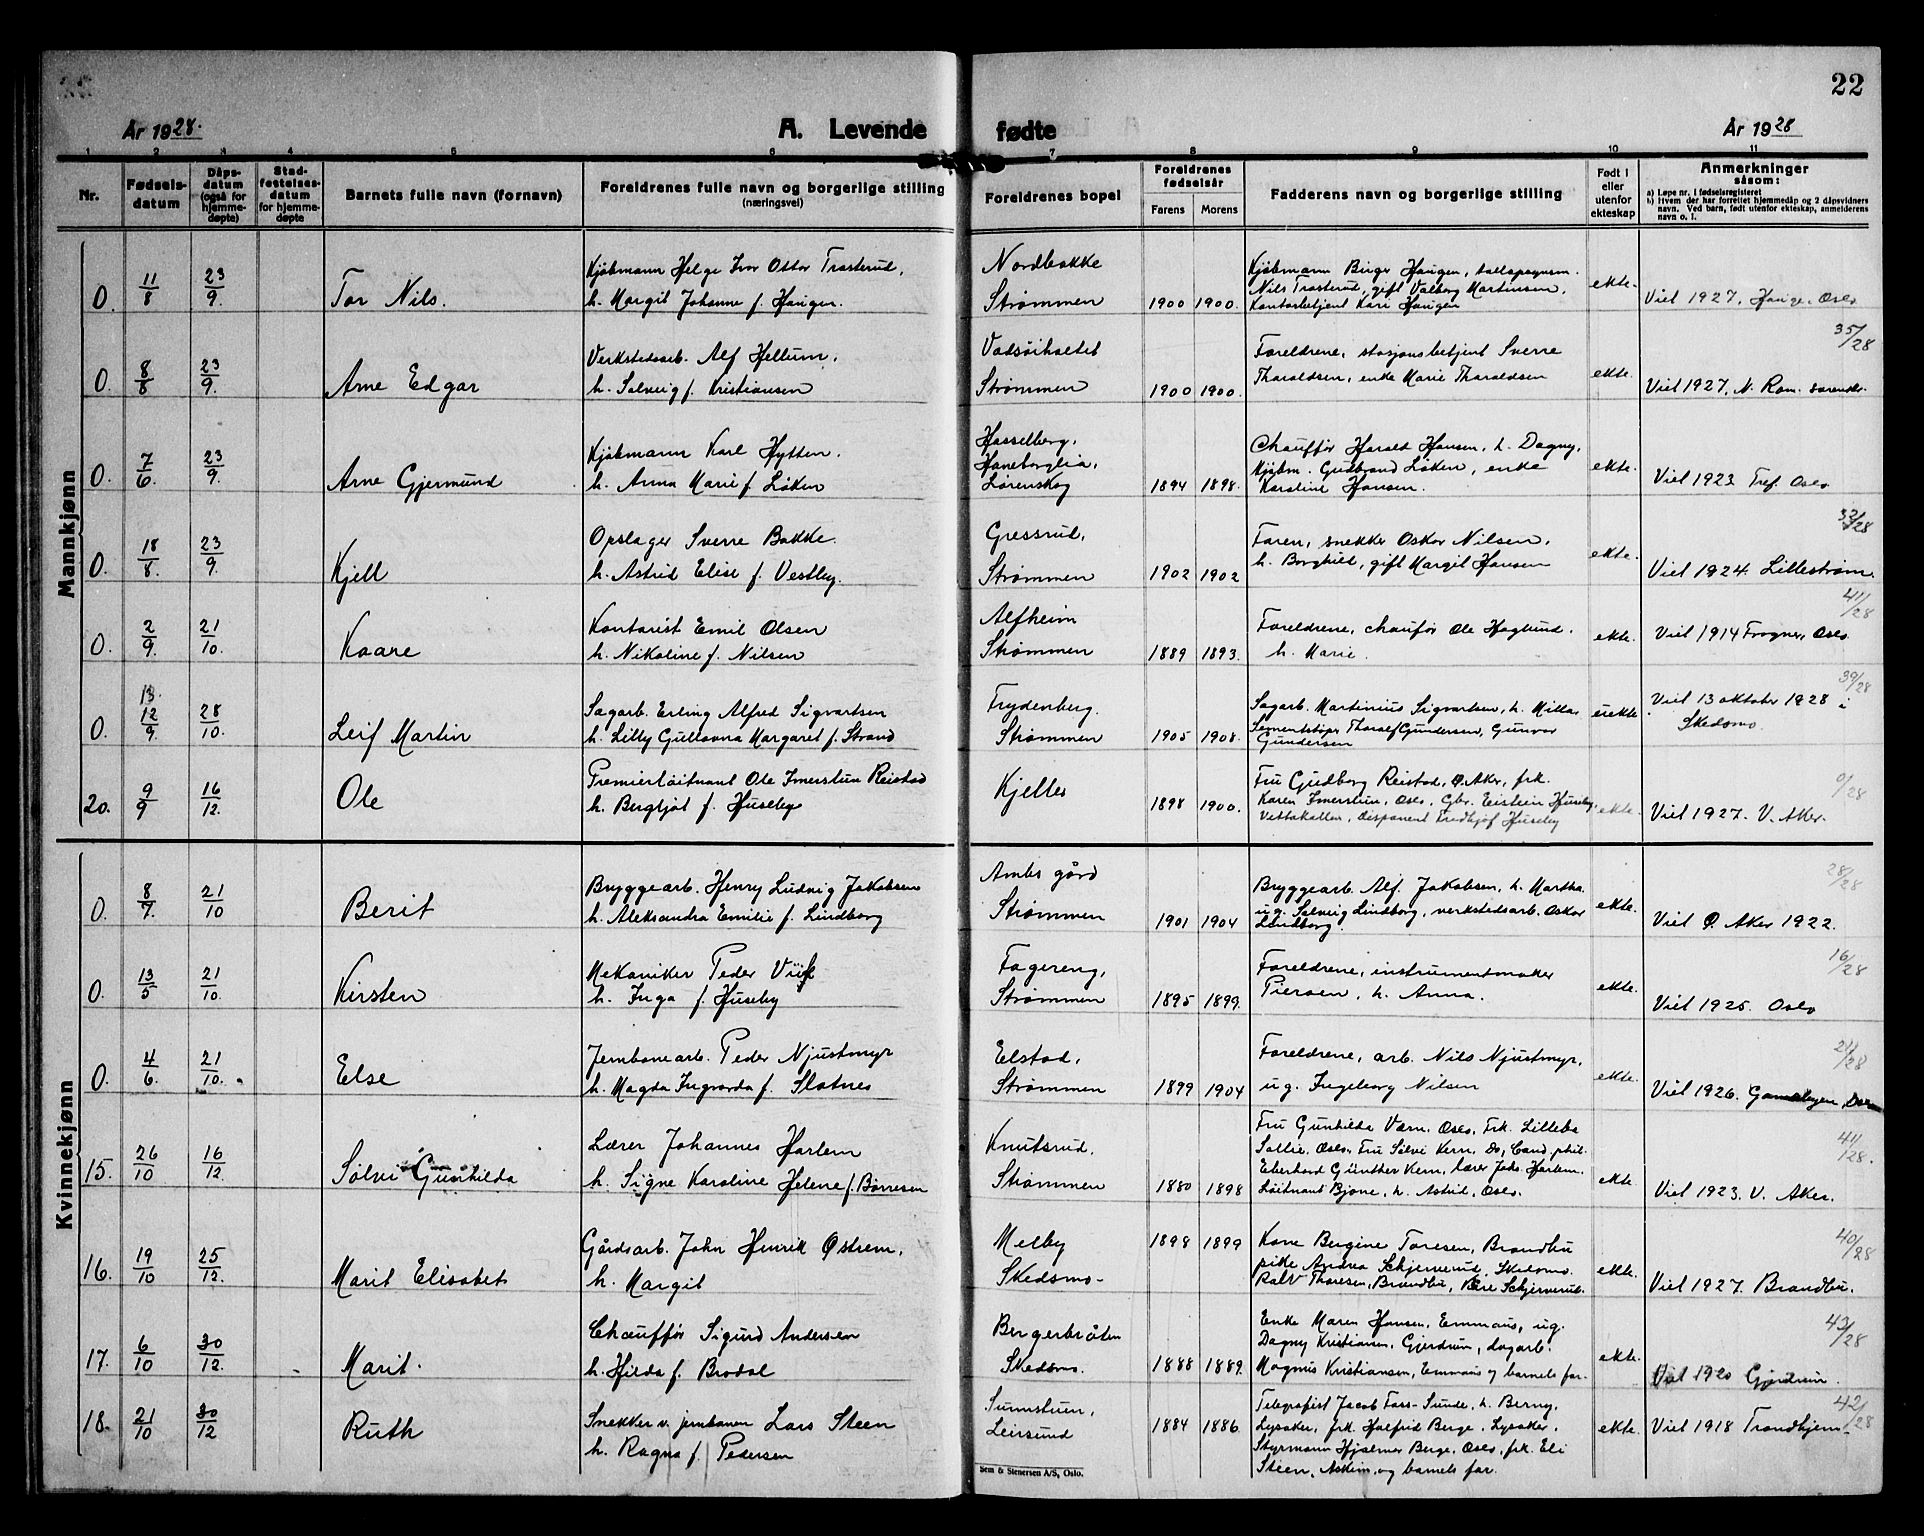 22
År 1928.
A. Levende fødte
År 1928
1 2 3 4 5 6 7 8 9 10 11
Nr.
Fødsels-
datum
Dåps-
datum
(også for
hjemme-
døpte)
Stad-
festelses-
datum
for hjemme-
døpte
Barnets fulle navn (fornavn)
Foreldrenes fulle navn og borgerlige stilling
(næringsvei)
Foreldrenes bopel
Foreldrenes
fødselsår
Farens Morens
Fadderens navn og borgerlige stilling
Født i
eller
utenfor
ekteskap
Anmerkninger
såsom:
a) Løpe nr. i fødselsregisteret
b) Hvem der har forrettet hjemmedåp og 2 dåpsvidners
navn. Ved barn, født utenfor ekteskap, anmelderens
navn o. l.
Mannkjønn
0. 11/8 23/9. Tor Nils.
Kjøbmann Helge Ivar Ottar Trasterud,
h. Margit Johanne f. Haugen.
Nordbakke
Strømmen
1900 1900.
Kjøbmann Birger Haugen,
Nils Trasterud, gift Valborg Martinsen,
Kontorbetjent Kari Haugen
ekte.
Viet 1927, Hauge, Oslo
0. 8/8 23/9. Arne Edgar
Verkstedsarb. Alf Hellum,
h. Solveig f. Kristiansen
Strømmen
1900 1900.
Foreldrene, stasjonsbetjent Sverre
Tharaldsen, enke Marie Tharaldsen
ekte.
35/28
Viet 1927, N. Rom.
0. 7/6 23/9. Arne Gjermund
Kjøbmann Karl Hytten,
h. Anna Marie f. Løken
Hasselberg,
Haneborglia,
Lørenskog
1894 1898.
Chauffør Harald Hansen, h. Dagny,
Kjøbm. Gudbrand Løken, enke
Karoline Hansen.
ekte.
Viet 1923 Tref. Oslo
0. 18/8 23/9. Kjell
Opslager Sverre Bakke.
h. Astrid Elise f. Vestby.
Gressrud,
Strømmen
1902 1902
Faren, snekker Oskar Nilsen,
h. Borghild, gift Margit Hansen
ekte.
32/28
Viet 1924. Lillestrøm.
0. 2/9. 21/10. Kaare
Kontorist Emil Olsen
h. Nikoline f. Nilsen
Alfheim
Strømmen
1889 1893.
Foreldrene, chaufør Ole Haglund,
h. Marie.
ekte.
41/28
Viet 1914 Frogner, Oslo
0. 13. 12/9. 28/10. Leif Martin
Sagarb. Erling Alfred Sigvartsen
h. Lilly Gustavna Margaret f. Strand
Frydenberg.
Strømmen
1905 1908.
Sagarb. Martinius Sigvartsen, h. Milla,
Sementstøper Tharalf Gundersen, Gunvor
Gundersen
uekte
39/28
Viet 13 oktober 1928 i
Skedsmo
20. 9/9 16/12. Ole
Premierløitnant Ole Imerslun Reistad
h. Bergljot f. Huseby
Kjeller
1898 1900.
Fru Gudborg Reistad, Ø. Aker, frk.
Karen Imerslun, Oslo, Gbr. Eistein Huseby,
Vettakollen, disponent Fredhjof Huseby
ekte.
0/28
Viet 1927. V. Aker.
Kvinnekjønn
0. 8/7. 21/10 Berit
Bryggearb. Henry Ludvig Jakobsen
h. Aleksandra Emilie f. Lindborg
Ambs gård
Strømmen
1901 1904
Bryggearb. Alf. Jakobsen, h. Martha.
ug. Solveig Lindborg, verkstedsarb. Oskar
Lindborg.
ekte.
28/28
Viet Ø. Aker 1922.
0. 13/5 21/10. Kirsten
Mekaniker Peder Viik
h. Inga f. Huseby
Fagereng,
Strømmen
1895 1899.
Foreldrene, instrumentmaker
Piersen, h. Anna.
ekte.
16/28
Viet 1925. Oslo
0. 4/6. 21/10. Else
Jernbanearb. Peder Njustmyr
h. Magda Ingvarda f. Slatnes
Elstad,
Strømmen
1899 1904
Foreldrene, arb. Nils Njustmyr,
ug. Ingeborg Nilsen
ekte.
21/28
Viet 1926. Gamlebyen,
15. 26/10 16/12 Sølvi Gunhilda
Lærer Johannes Harlem
h. Signe Karoline Helene f. Børresen
Knutsrud,
Strømmen
1880 1898
Fru Gunhilda Værn. Oslo, Frk. Lilleba
Oslo, Fru Sølvi Kern, Do, Cand. phil.
Eberhard Günther Kern, lærer Johs. Harlem.
Løitnant Bjone, h. Astrid, Oslo.
ekte
44/128.
Viet 1923. V. Aker.
16. 19/10 25/12. Marit Elisabet
Gårdsarb. John Henrik Østrem,
h. Margit
Melby
Skedsmo-
1898 1899
Kone Bergine Toresen, Brandbu
pike Andrea Schjerverud, Skedsmo.
Ralv Thoresen, Brandbu, Kåre Schjerverud.
ekte.
40/28
Viet 1927. Brandbu.
17. 6/10 30/12. Marit.
Chauffør Sigurd Andersen
h. Hilda f. Brodal
Bergerbråten
Skedsmo.
1888 1889.
Enke Maren Hansen, Emmaus, ug.
Dagny Kristiansen, Gjerdrum, dagarb.
Magnus Kristiansen, Emmaus og barnets far.
ekte.
43/28
Viet 1920 Gjerdrum.
18. 21/10 30/12 Ruth
Snekker v. jernbanen Lars Steen
h. Ragna f. Pedersen
Leirsund
1884 1886.
Telegrafist Jacob Fass-Sunde, h. Berny,
Lysaker, frk. Halfrid Berge, Lysaker,
Styrmann Hjalmar Berge, Oslo, frk. Eli
Steen, Askim, og barnets far.
ekte.
42/28
Viet 1918 Trondhjem
Sem & Stenersen A/S, Oslo.